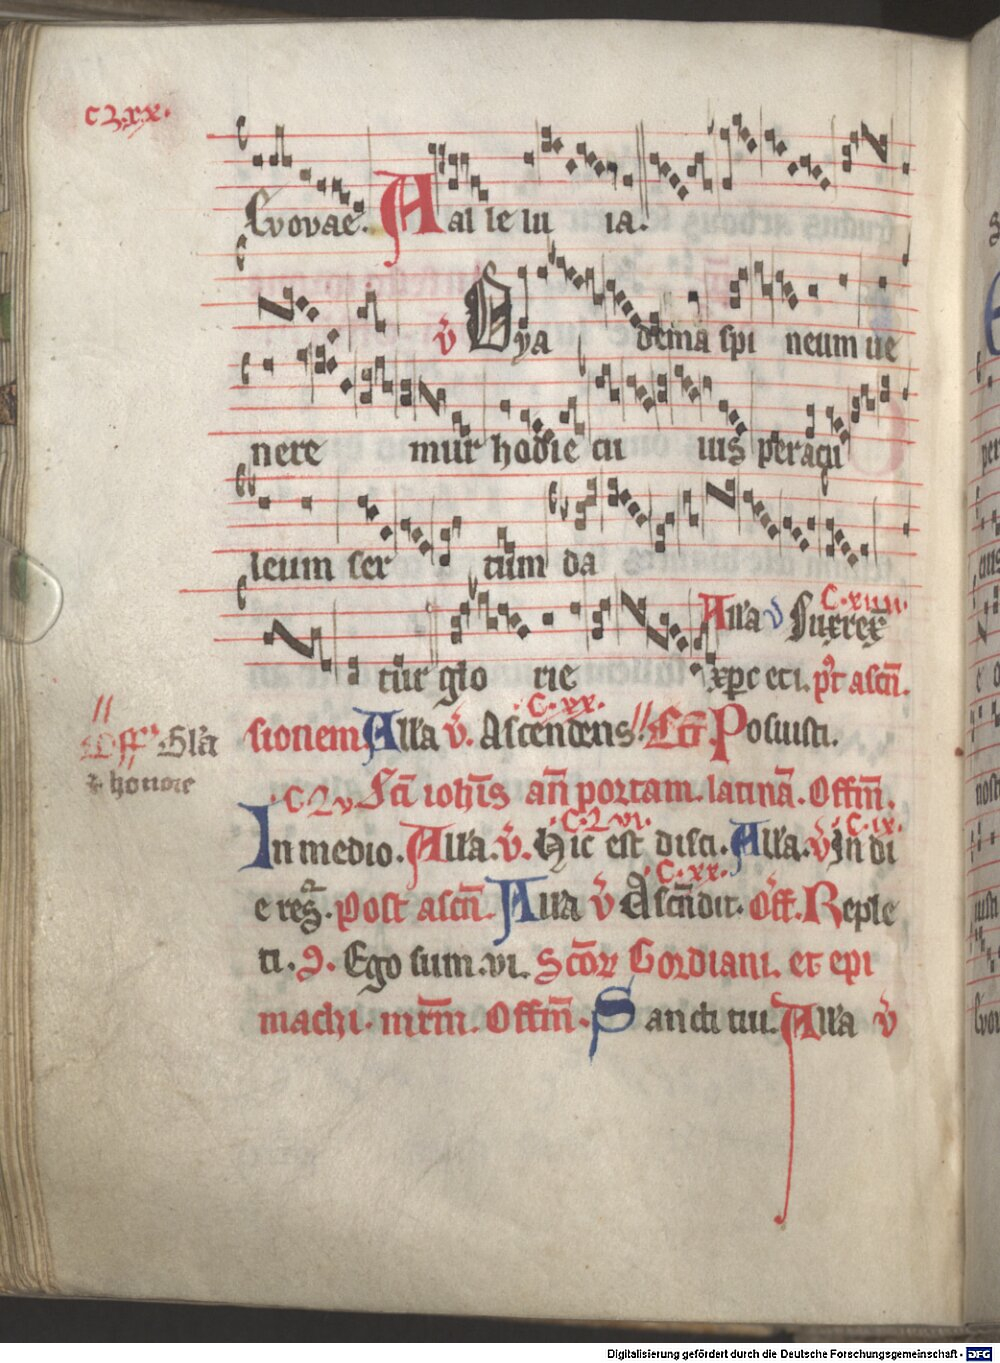 Evovae. Aal le lu ia.
v̄ Dya dema spi neum ue
nere mur hodie cu ius peracu
leum ser tum da
C·xiiii·
Alla v Surrex̄
tur glo rie xp̄e eti. pt ascn̄.
C·xx·
sionem Alla v̄. Ascendens. Off Posuisti.
Off Gl̄a
honore
Sc̄i ioh̄is an̄ portam. latinā. Offm̄.
C·Lvi· C·ix·
In medio. Alla. v̄. Hic est disci. Alla. v̄ In di
C·xx·
e res̄. post ascn̄. Alla v̄ Ascn̄dit. Off. Reple
ti. Ego sum. vi. Gordiani. et epi
machi. mr̄m. Offm̄. Sancti tui. Alla v̄
Digitalisierung gefördert durch die Deutsche Forschungsgemeinschaft - DFG